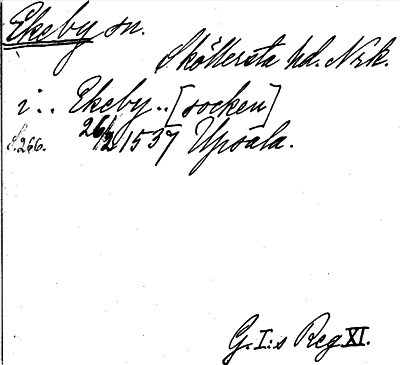 Ekeby sn.
Sköllersta hd. Nrk.
i.. Ekeby.. [socken]
S. 266. 26/2 1537 Upsala.
G. I:s Reg. XI.